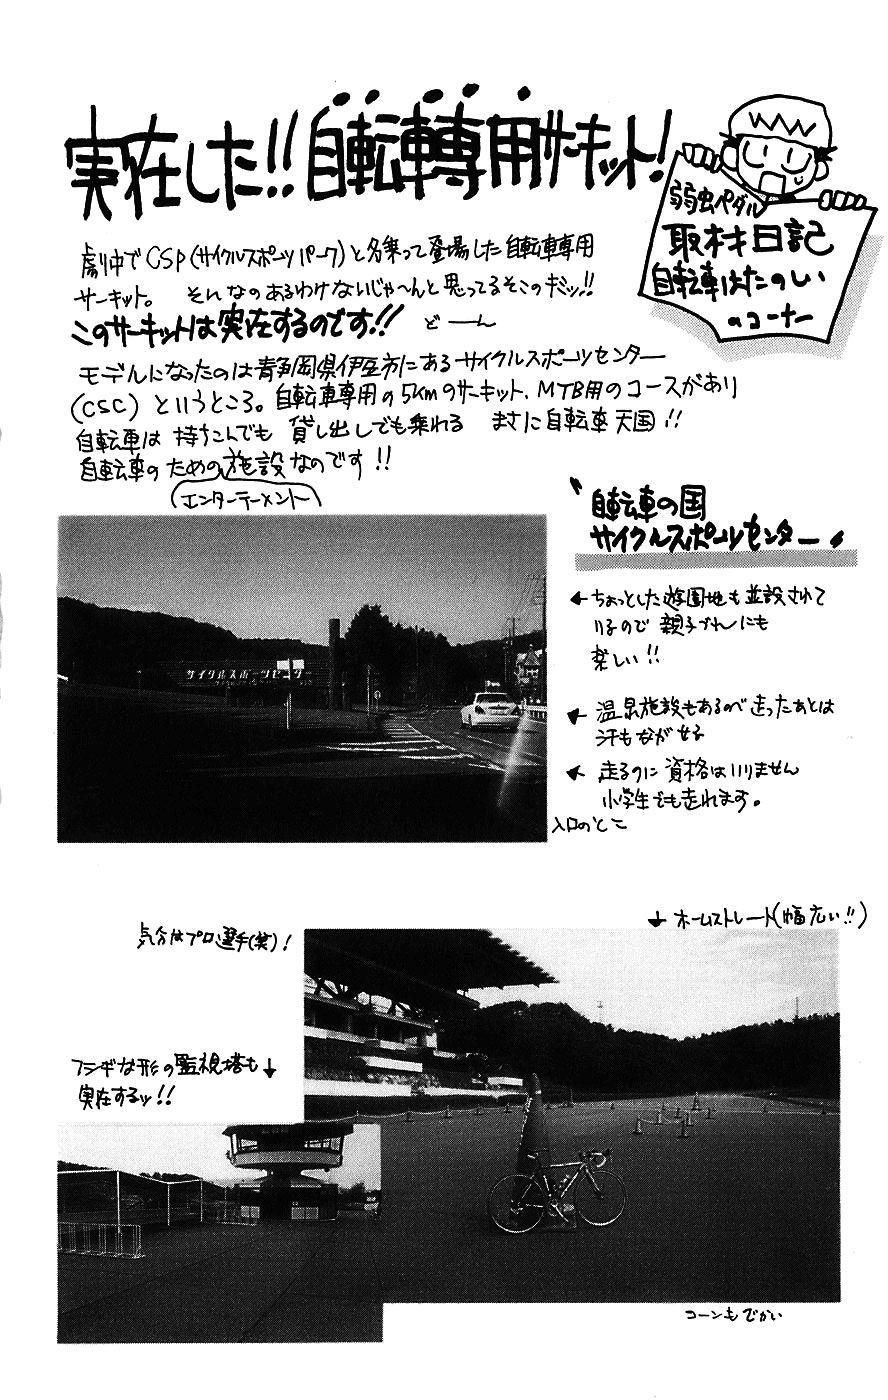 実在した!!自転車専用サーキット!
弱虫ペダル
取材日記
自転車はたのしい
のコーナー
劇中でCSP(サイクルスポーツパーク)と名乗って登場した自転車専用
サーキット。 そんなのあるわけないじゃ〜んと思ってるそこのキミッ!!
このサーキットは実在するのです!! どーん
モデルになったのは静岡県伊豆市にあるサイクルスポーツセンター
(CSC)というところ。自転車専用の5kmのサーキット、MTB用のコースがあり
自転車は 持ちこんでも 貸し出しでも乗れる まさに自転車天国!!
自転車のための施設なのです!!
(エンターテーメント)
〝自転車の国
サイクルスポーツセンター〟
サイクルスポーツセンター
←ちょっとした遊園地も並設されて
いるので 親子づれにも
楽しい!!
←温泉施設もあるので走ったあとは
汗もながせる
←走るのに資格はいりません
小学生でも走れます。
入口のとこ
↓ホームストレート(幅広い!!)
気分はプロ選手(笑)!
フシギな形の監視塔も↓
実在するッ!!
コーンもでかい